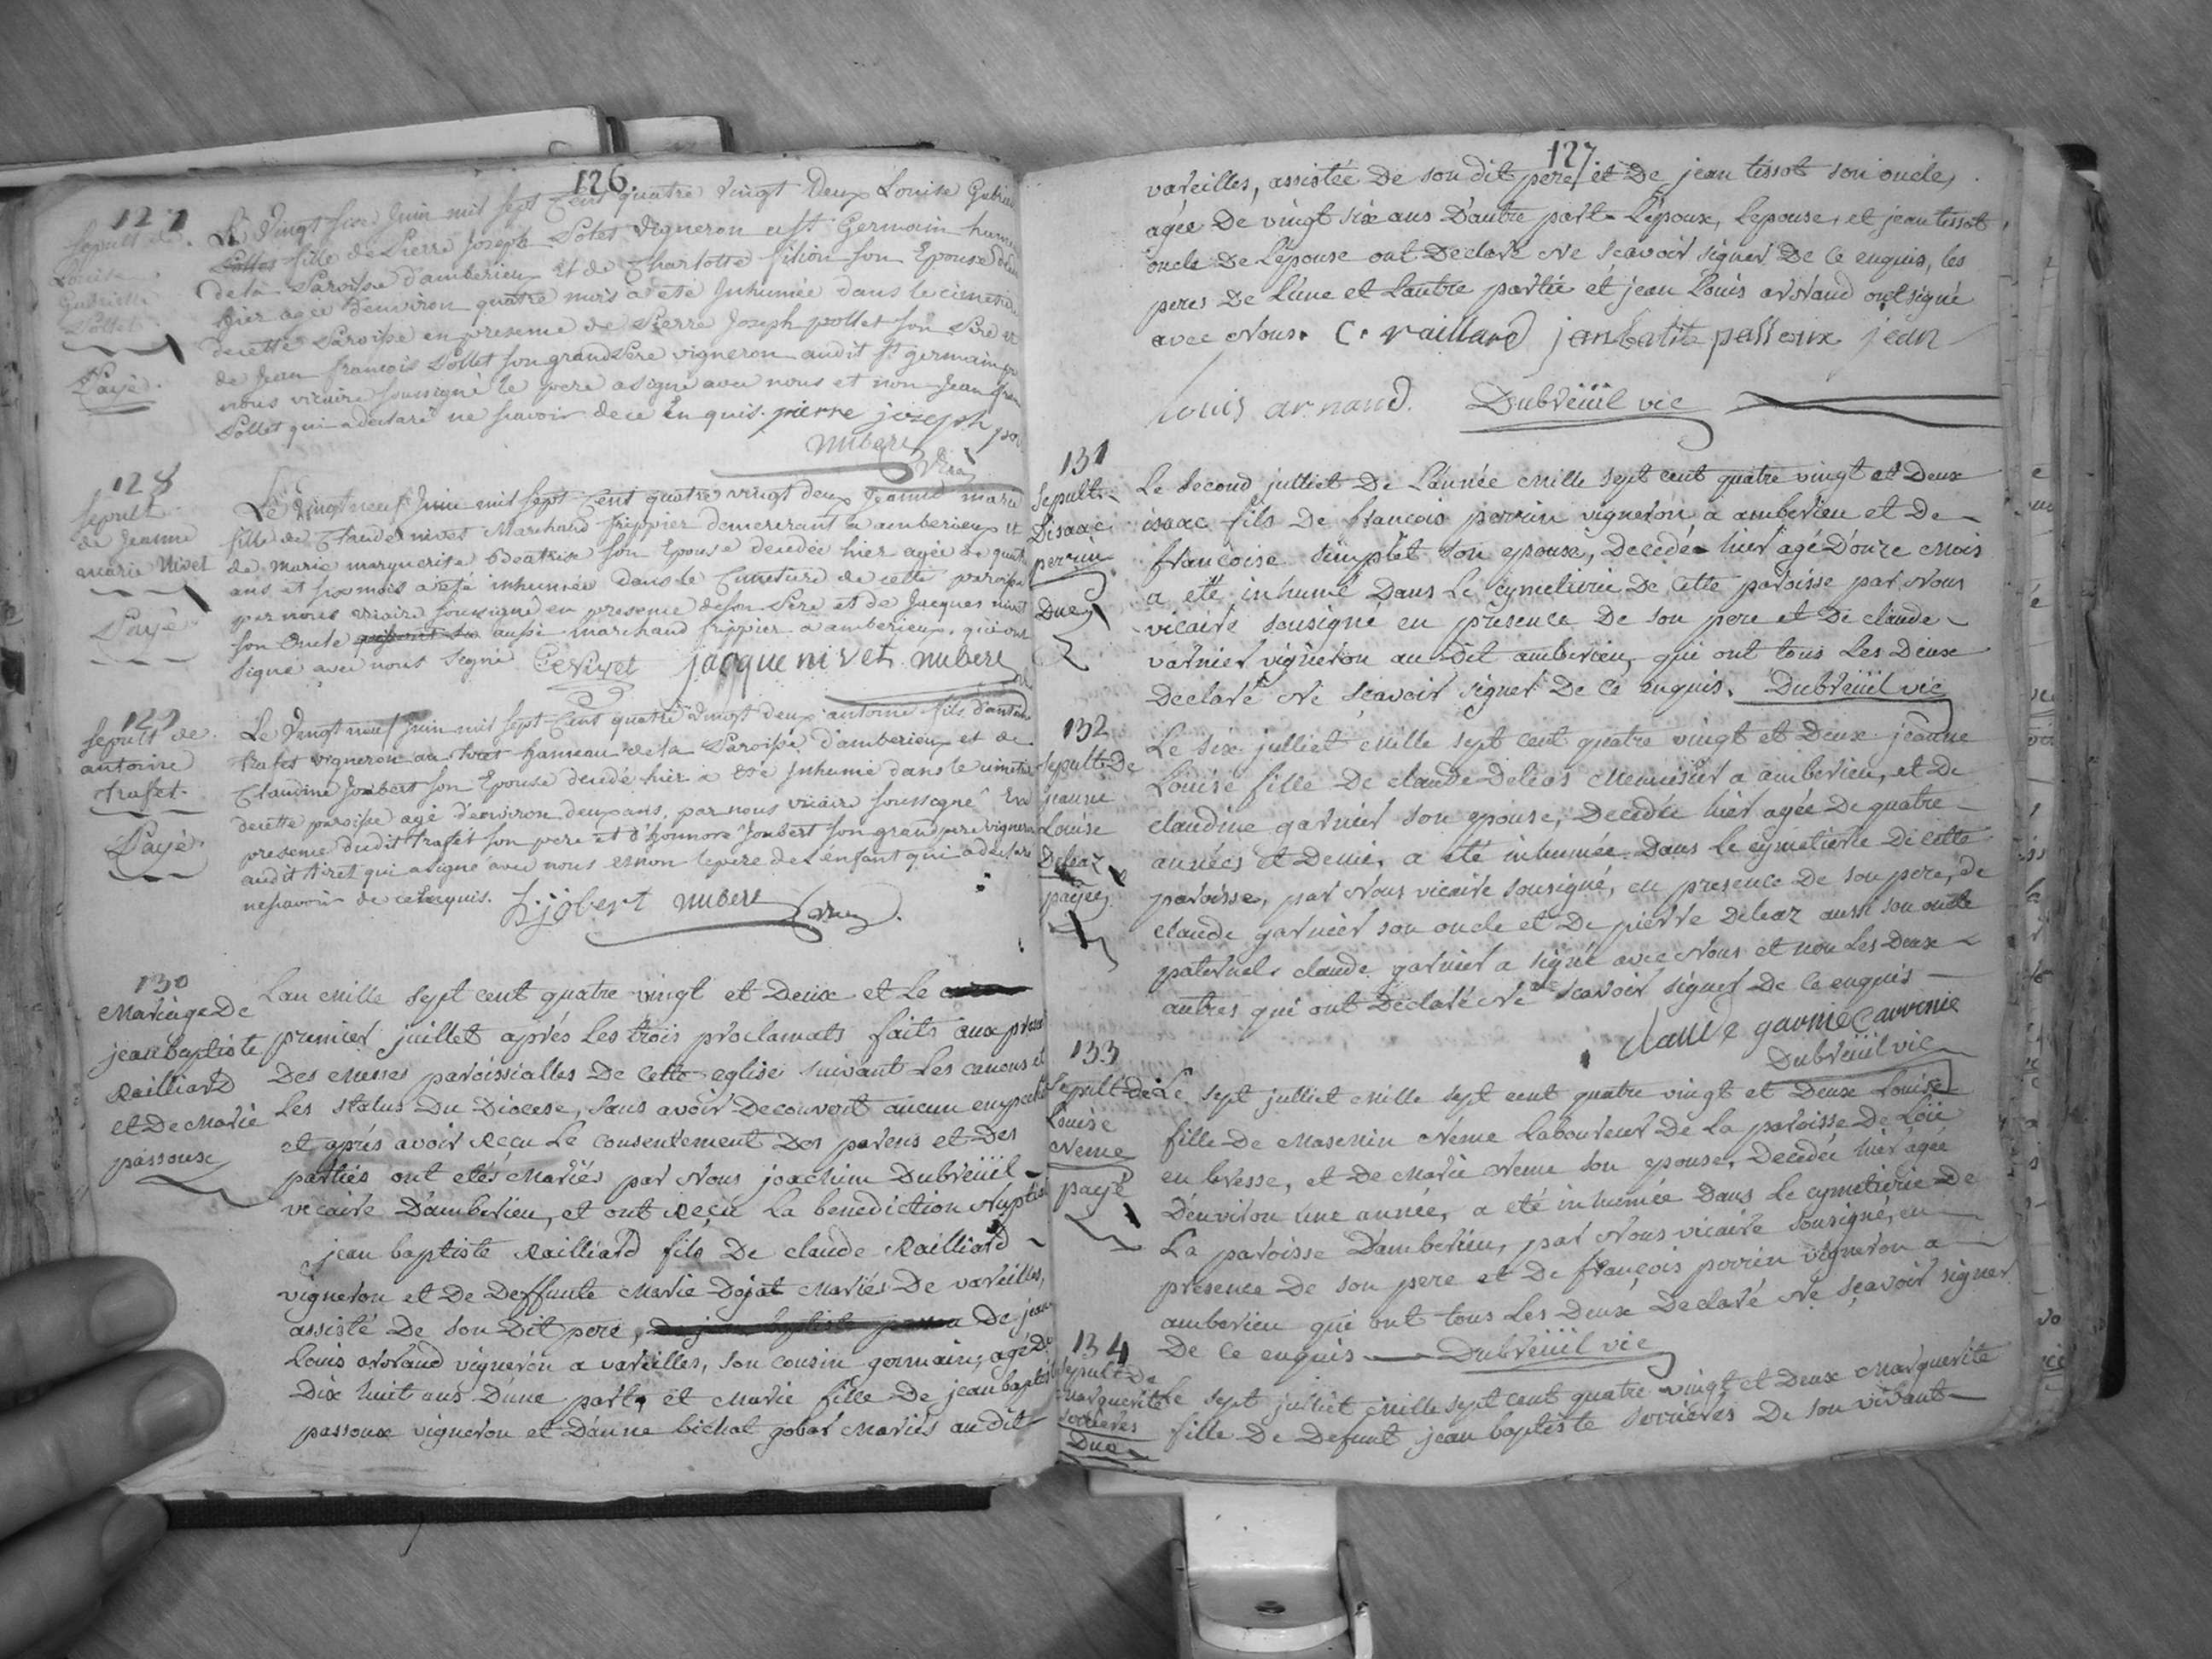 126.
127
sepult de
Louise
Gabrielle
Pollet
Payé.
Le Vingt six Juin mil sept Cent quatre vingt Deux Louise Gabriel
Pollet fille de Pierre Joseph Polet Vigneron a St Germain hameau
de la Paroisse d'amberieux et de Charlotte filion son Epouse
hier agée denviron quatre mois a été Inhumée dans le cimetier
de cette Paroisse en presence de Pierre Joseph pollet son Pere et
de Jean françois Pollet son grand Pere vigneron audit St germain
nous vicaire soussigné le pere a signé avec nous et non Jean fran
Pollet qui a declaré ne scavoir de ce Enquis. pierre joseph pol
nubere
vic
128
sepult
de Jeanne
marie Nivet
Payé
Le Vingt neuf Juin mil sept Cent quatre vingt deux Jeanne marie
fille de Claude nivet Marchand frippier demeurant a amberieux et
de marie marguerite Beatrix son Epouse decedée hier agée de quatre
ans et six mois a été inhumée dans le Cimetiere de cette paroisse
par nous vicaire soussigné en presence de son Pere et de Jacques nivet
son Oncle aussi marchand frippier a amberieux, qui ont
signé avec nous signé CNivet jacque nivet nubere
129
sepult de
antoine
trafet
Payé.
Le Vingt neuf juin mil sept Cent quatre Vingt deux antoine fils d'antoine
trafet vigneron au tiret hameau de la Paroisse d'amberieux et de
Claudine Joubert son Epouse decedé hier a été Inhumé dans le cimetie
de cette paroisse agé d'environ deux ans, par nous vicaire soussigné En
presence dudit trafet son pere et d'honnoré Joubert son grand pere vigneron
audit tiret qui a signé avec nous et non le pere de l'enfant qui a declaré
ne scavoir de ce Enquis. h jobert nubere vic
130
Mariage De
jean baptiste
Railliard
et De Marie
passoux
Lan Mille sept cent quatre vingt et Deux et Le
premier juillet aprés Les trois proclamats faits aux prone
Des Messes paroissialles De cette eglise suivant Les canons et
Les status Du Diocese, sans avoir Decouvert aucun empeche
et aprés avoir Reçu Le consentement Des parens et Des
parties ont etés Mariés par Nous joachim Dubreüil
vicaire D'amberieu, et ont Reçu La benediction Nuptia
jean baptiste Railliard fils De claude Railliard
vigneron et De Deffunte Marie Dojat Mariés De vareilles,
assisté De son Dit pere, De jean
Louis arnaud vigneron a vareilles, son cousin germain, agé De
Dix huit ans D'une part, et Marie fille De jean baptiste
passoux vigneron et D'anne bichat gobar Mariés au dit
127.
vareilles, assistée De son dit pere et De jean tissot son oncle,
agée De vingt six ans D'autre part. L'epoux, Lepouse, et jean tissot
oncle De Lepouse ont Declaré Ne scavoir signer De ce enquis, les
peres De L'une et Lautre partie et jean Louis arnaud ont signé
avec Nous. C. raillard jan batit passoux jean
louis arnaud. Dubreüil vic
131
Sepult.
D'isaac
perrin
Due
Le second julliet De L'année Mille sept cent quatre vingt et Deux
isaac fils De francois perrin vigneron a amberieu et De
francoise simplet son epouse, Decedé hier agé D'onze Mois
a eté inhumé Dans Le cymetierie De Cette paroisse par Nous
vicaire sousigné en presence De son pere et De claude
varnier vigneron au Dit amberieu, qui ont tous Les Deux
Declaré Ne scavoir signer De ce enquis. Dubreüil vic
132
sepult De
jeanne
Louise
Deleaz
payée
Le six julliet Mille sept cent quatre vingt et Deux jeanne
Louise fille De claude Deleas Menuisier a amberieu, et De
claudine garnier son epouse, Decedée hier agée De quatre
années et Demie, a eté inhumée Dans Le cymetierie De cette
paroisse, par Nous vicaire sousigné, en presence De son pere, de
claude garnier son oncle et De pierre Deleaz aussi son oncle
paternel. claude garnier a signé avec Nous et non Les Deux
autres qui ont Declaré Ne scavoir signer De ce enquis
claude garnie
Dubreüil vic
133
Sepult de
Louise
Neme
payé
Le sept julliet Mille sept cent quatre vingt et Deux Louise
fille De Masenin Neme Laboureur De La paroisse De Loie
en bresse, et De Marie Neme son epouse, Decedée hier agée
D'environ une année, a eté inhumée Dans Le cymetierie De
La paroisse D'amberieu, par Nous vicaire sousigné, en
presence De son pere et De françois perrin vigneron a
amberieu qui ont tous Les Deux Declaré Ne sçavoir signer
De ce enquis Dubreüil vic
134
sepult De
marguerite
serrieres
Due
Le sept julliet Mille sept cent quatre vingt et Deux Marguerite
fille De Defunt jean baptiste serrieres De son vivant